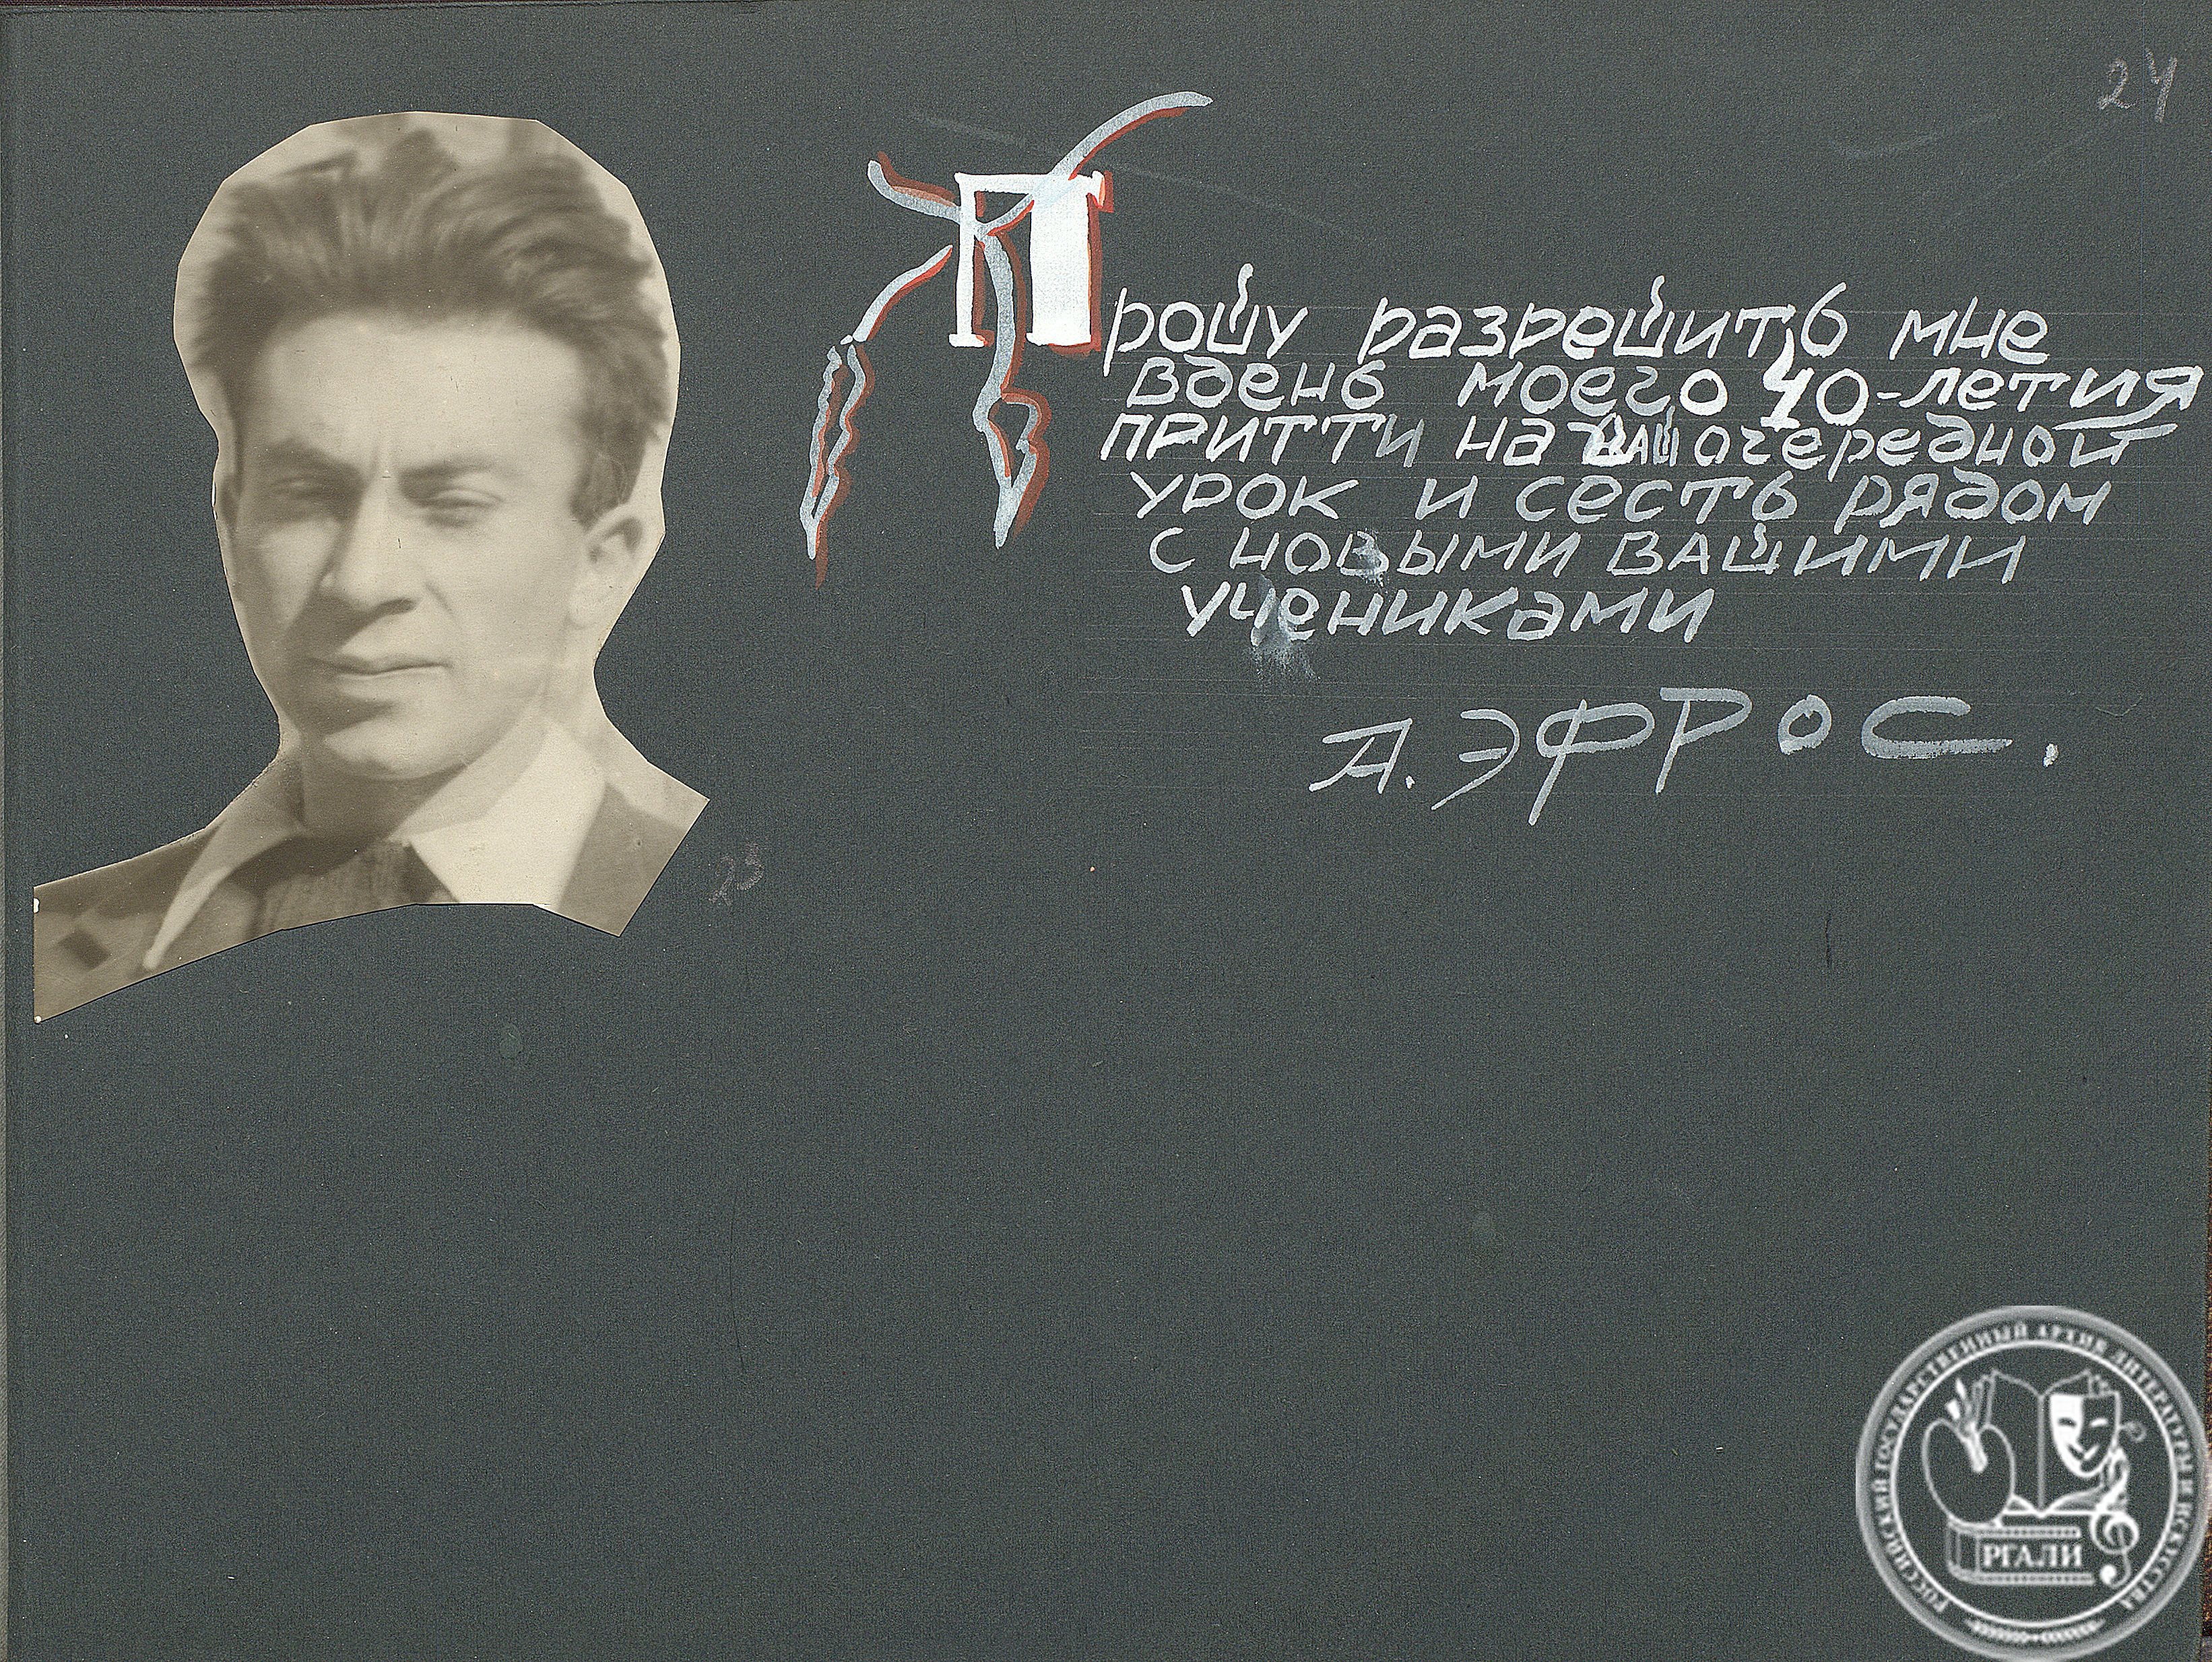 24
Прошу разрешить мне
в день моего 40-летия
притти на ваш очередной
урок и сесть рядом
с новыми вашими
учениками
А. ЭФРОС.
23
РОССИЙСКИЙ ГОСУДАРСТВЕННЫЙ АРХИВ ЛИТЕРАТУРЫ И ИСКУССТВА
РГАЛИ